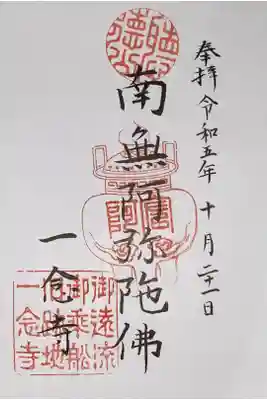 奉拝 令和五年 十月二十一日
南無阿弥陀佛
一念寺
御遠流
御乗船
跡地
一念寺